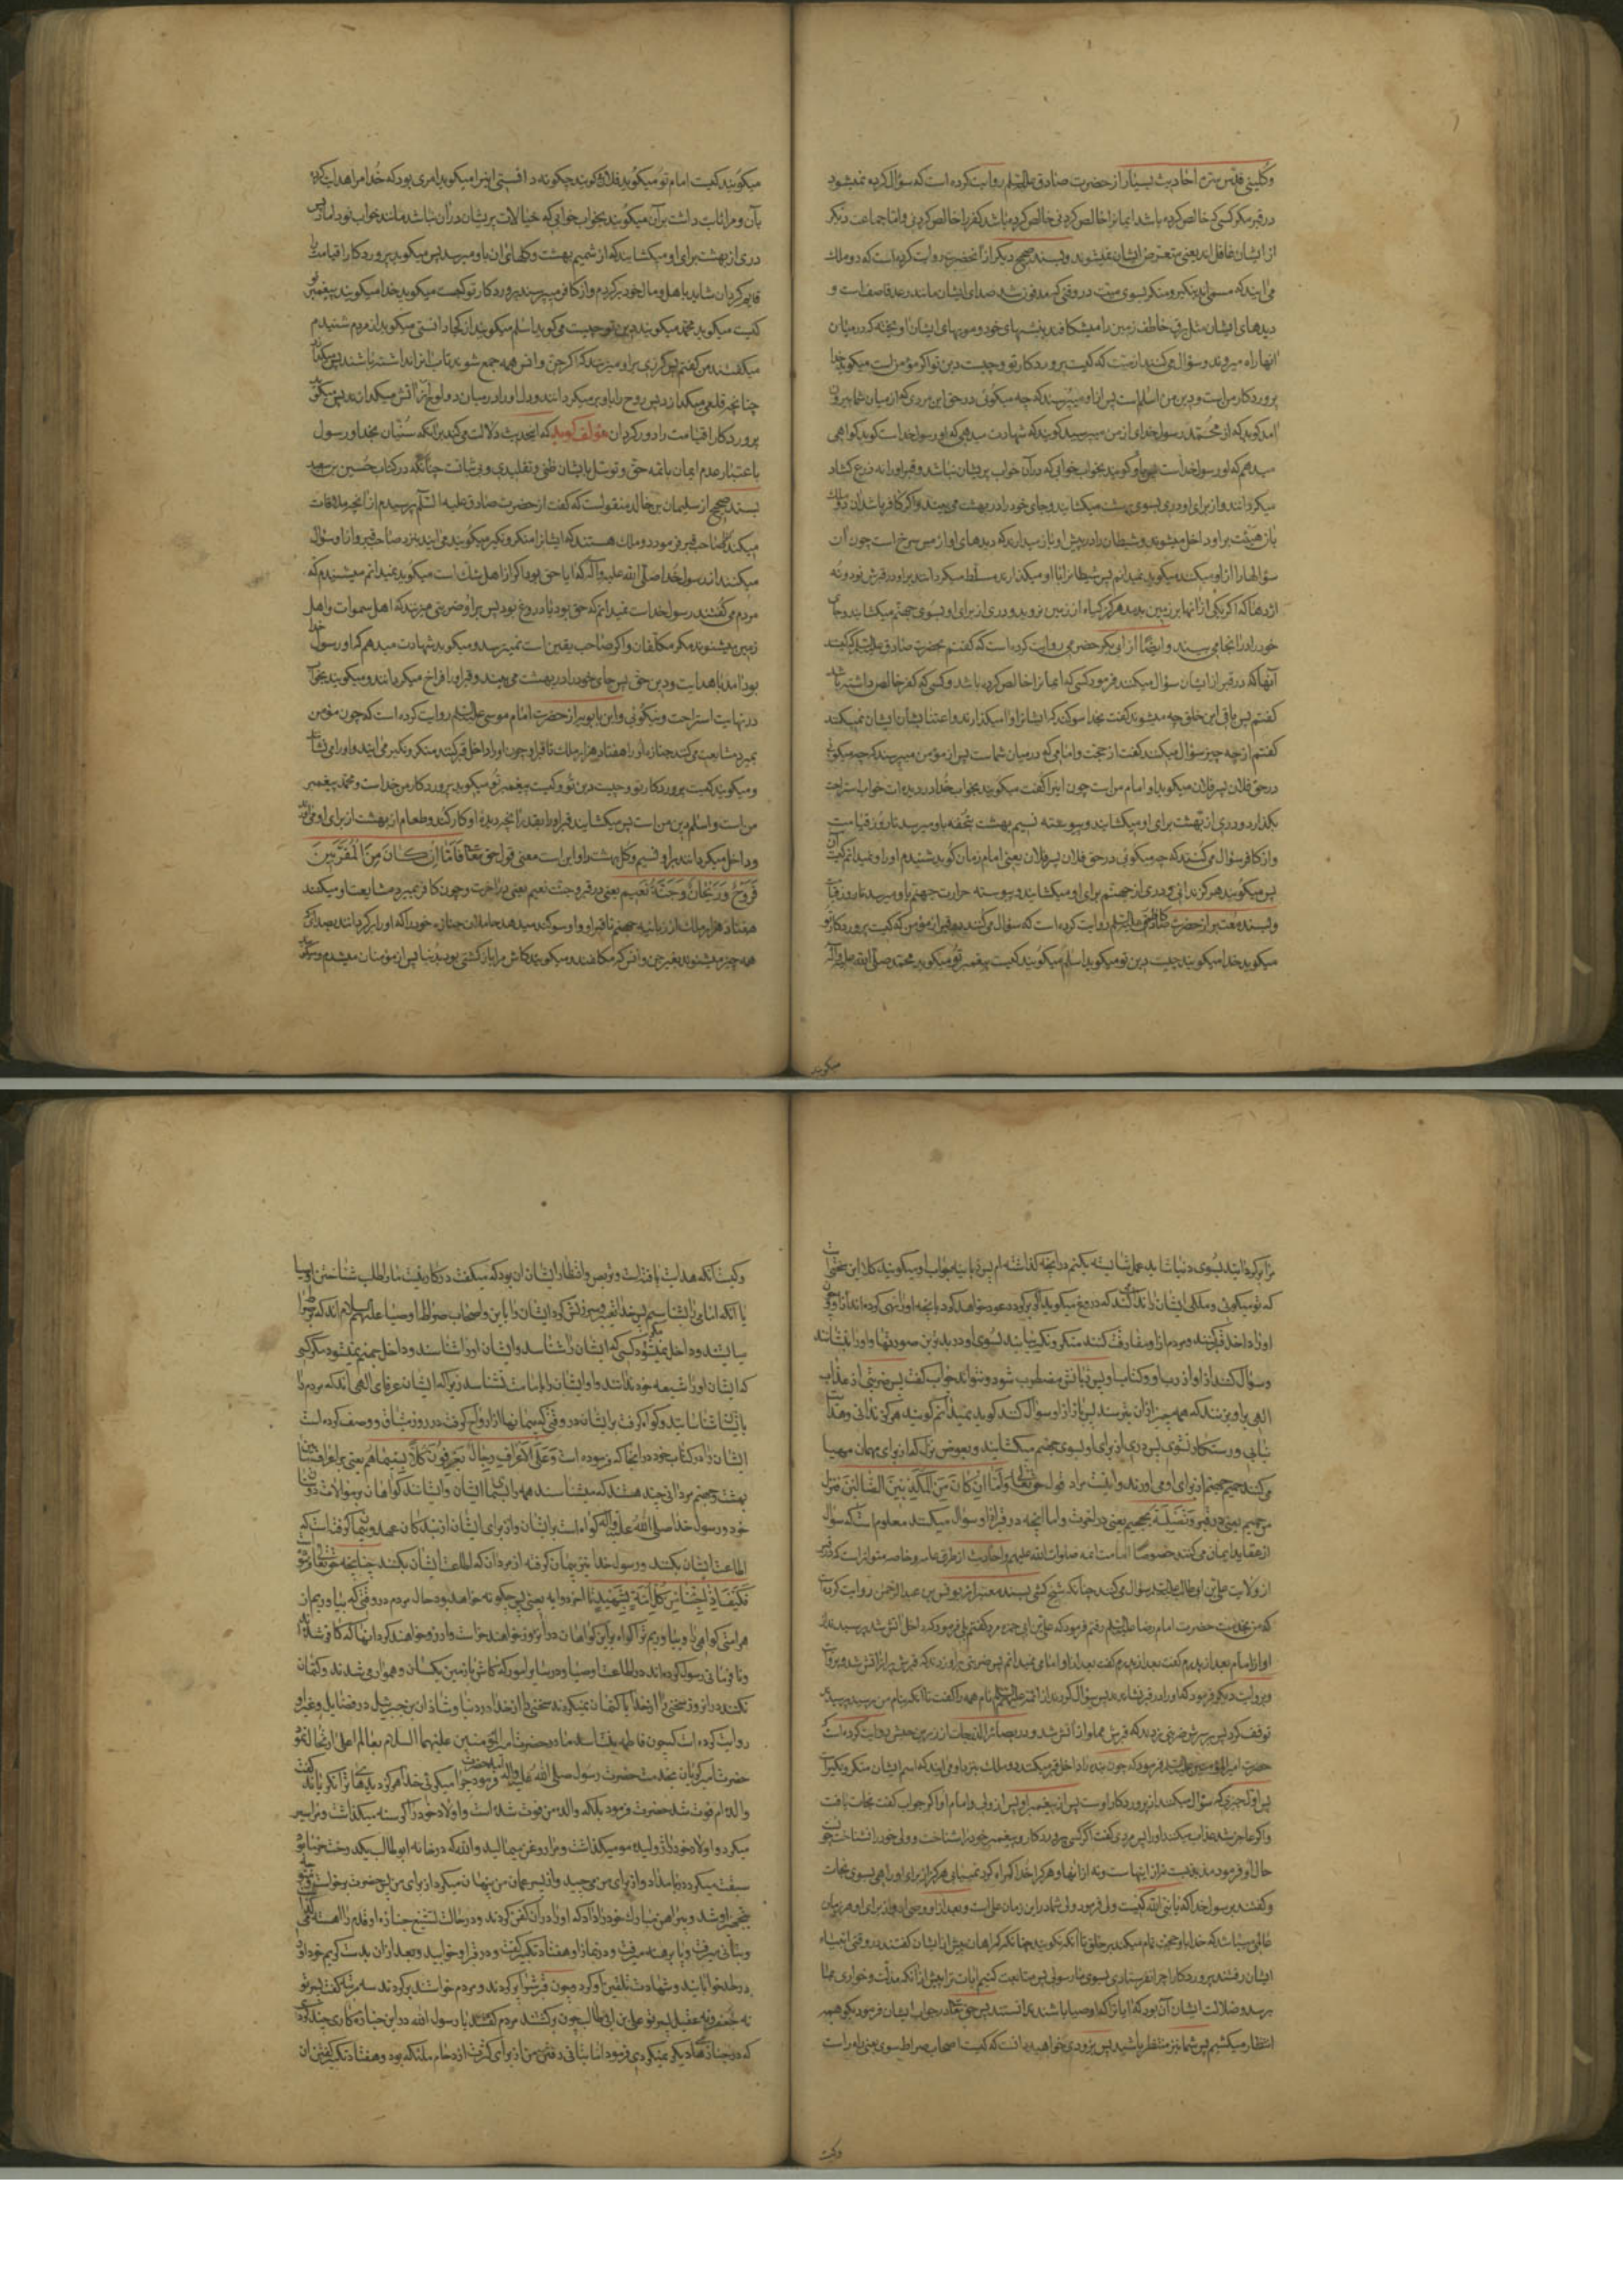 وکلینی قدس سره احادیث بسیار از حضرت صادق علیه السلم روایت کرده است که سؤال کرده نمیشود
در قبر مکر کسیکه خالص کرده باشد ایمانرا خالص کردنی یا خالص کرده باشد کفر را خالص کردنی واما جماعت دیکر
از ایشان غافل اند یعنی متعرض ایشان نمیشوند وبسند صحیح دیکر از آنحضرت روایت کرده است که دو ملک
می آیند که مسمی اند بنکیر ومنکر بسوی میت در وقتی که مدفون شد صدای ایشان مانند رعد قاصف است و
دیدهای ایشان مثل برق خاطف زمین را میشکافند بنیشهای خود ومویهای ایشان آویخته که در میان
آنها راه میروند وسؤال میکنند از میت که کیست پروردکار تو وچیست دین تو اکر مؤمن است میکوید خدا
پروردکار من است ودین من اسلام است پس از او میپرسند که چه میکوئی در حق این مردی که از میان شما بیرون
آمد کوید که از محمد رسول خدا ی از من میپرسید کویند که شهادت میدهی که او رسول خداست کوید کواهی
میدهم که او رسول خداست پس باو کویند بخواب خوابی که در آن خواب پریشان نباشد وقبر او را نه ذرع کشاد
میکردانند واز برای او دری بسوی بهشت میکشایند وجای خود را در بهشت می بیند واکر کافر باشد آن دو ملک
باز هیئت بر او داخل میشوند وشیطان را در پیش او باز میدارند که دیدهای او از مس سرخ است چون آن
سؤالها را از او میکنند میکوید نمیدانم پس شیطانرا با او میکذارند ومسلط میکردانند بر او در قبرش نود ونه
اژدها که اکر یکی از آنها بر زمین بدمد هرکز کیاه از زمین نروید ودری از برای او بسوی جهنم میکشایند وجای
خود را در آنجا می بیند وایضا از ابی بکر حضرمی روایت کرده است که کفتم بحضرت صادق علیه السلم که کیستند
آنها که در قبر از ایشان سؤال میکنند فرمود کسی که ایمانرا خالص کرده باشد وکسی که کفر خالص داشته باشد
کفتم پس باقی این خلق چه میشوند کفت بخدا سوکند که ایشانرا وا میکذارند واعتنا بشأن ایشان نمیکنند
کفتم از چه چیز سؤال میکنند کفت از حجت وامامی که در میان شماست پس از مؤمن میپرسند که چه میکوئی
در حق فلان پسر فلان میکوید او امام من است چون اینرا کفت میکویند بخواب خدا در دیده ات خواب استراحت
بکذارد ودری از بهشت برای او میکشایند وپیوسته نسیم بهشت بتحفه باو میرسد تا روز قیامت
واز کافر سؤال میکنند که چه میکوئی در حق فلان پسر فلان یعنی امام زمان کوید شنیدم او را ونمیدانم کیست آن
پس میکویند هرکز ندانی ودری از جهنم برای او میکشایند وپیوسته حرارت جهنم باو میرسد تا روز قیامت
وبسند معتبر از حضرت کاظم علیه السلم روایت کرده است که سؤال میکنند در قبر از مؤمن که کیست پروردکار تو
میکوید خدا میکویند چیست دین تو میکوید اسلام میکویند کیست پیغمبر تو میکوید محمد صلی الله علیه وآله
میکویند
میکویند کیست امام تو میکوید فلان کویند چکونه دانستی اینرا میکوید امری بود که خدا مرا هدایت کرد
بآن ومرا ثابت داشت بر آن میکویند بخواب خوابی که خیالات پریشان در آن نباشد مانند خواب نو داماد پس
دری از بهشت برای او میکشایند که از شمیم بهشت وکلهای آن باو میرسد پس میکوید پروردکارا قیامت را
قایم کردان شاید باهل ومال خود برکردم واز کافر میپرسند پروردکار تو کیست میکوید خدا میکویند پیغمبر تو
کیست میکوید محمد میکویند دین تو چیست میکوید اسلام میکویند از کجا دانستی میکوید از مردم شنیدم
میکفتند من کفتم پس کرزی بر او میزنند که اکر جن وانس همه جمع شوند تاب آنرا نداشته باشند پس میکدازد
چنانچه قلعی میکدازد پس روح را باو برمیکردانند ودل او را در میان دو لوح از آتش میکذارند پس میکوید
پروردکارا قیامت را دور کردان مؤلف کوید که اینحدیث دلالت میکند بر آنکه سنیان بخدا ورسول
باعتبار عدم ایمان بائمه حق وتوسل بایشان ظنی وتقلیدی وبی ثباتست چنانکه در کتاب حسین بن سعید
بسند صحیح از سلیمان بن خالد منقولست که کفت از حضرت صادق علیه السلم پرسیدم از آنچه ملاقات
میکند صاحب قبر فرمود دو ملک هستند که ایشانرا منکر ونکیر میکویند می آیند بنزد صاحب قبر واز او سؤال
میکنند از رسول خدا صلی الله علیه وآله که آیا حق بود اکر از اهل شک است میکوید نمیدانم میشنیدم که
مردم میکفتند رسول خداست نمیدانم که حق بود یا دروغ بود پس بر او ضربتی میزنند که اهل سموات واهل
زمین میشنوند مکر مکلفان واکر صاحب یقین است نمیترسد ومیکوید شهادت میدهم که او رسول خدا
بود آمد با هدایت ودین حق پس جای خود را در بهشت می بیند وقبر او را فراخ میکردانند ومیکویند بخواب
در نهایت استراحت ونیکوئی وابن بابویه از حضرت امام موسی علیه السلم روایت کرده است که چون مؤمن
بمیرد مشایعت میکنند جنازه او را هفتاد هزار ملک تا قبر او وچون او را داخل قبر کنند منکر ونکیر می آیند واو را می نشانند
ومیکویند کیست پروردکار تو وچیست دین تو وکیست پیغمبر تو میکوید پروردکار من خداست ومحمد پیغمبر
من است واسلام دین من است پس میکشایند قبر او را بقدر آنچه دیده او کار کند وطعام از بهشت از برای او می آورند
وداخل میکردانند بر او نسیم وکل بهشت را واین است معنی قول حق تعالی فاما ان کان من المقربین
فروح وریحان وجنة نعیم یعنی در قبر وجنت نعیم یعنی در آخرت وچون کافر بمیرد مشایعت او میکنند
هفتاد هزار ملک از زبانیه جهنم تا قبر او واو سوکند میدهد حاملان جنازه خود را که او را برکردانند بصدائی که
همه چیز میشنوند بغیر جن وانس که مکلفند ومیکوید کاش مرا بازکشتی بود بدنیا پس از مؤمنان میشدم ومیکوید
مرا برکردانید بسوی دنیا شاید عمل شایسته بکنم در آنچه کذاشته ام پس زبانیه جواب او میکویند کلا این سخنی است
که تو میکوئی وملکی ایشانرا ندا کند که دروغ میکوید اکر برکردد عود خواهد کرد بآنچه او را نهی کرده اند از آن وچون
او را داخل قبر کنند ومردم از او مفارقت کنند منکر ونکیر بیایند بسوی او در بدترین صورتها واو را بنشانند
وسؤال کنند از او از رب او وکتاب او پس زبانش مضطرب شود ونتواند جواب کفت پس ضربتی از عذاب
الهی بر او بزنند که همه چیز از آن بترسند پس باز از او سؤال کنند کوید نمیدانم کویند هرکز ندانی وهدایت
نیابی ورستکار نشوی پس دری از برای او بسوی جهنم میکشایند وبعوض نزل که از برای مهمان مهیا
میکنند حمیم جهنم از برای او می آورند واینست مراد قول حق تعالی واما ان کان من المکذبین الضالین فنزل
من حمیم یعنی در قبر وتصلیة جحیم یعنی در آخرت واما آنچه در قبر از او سؤال میکنند معلوم است که سؤال
از عقاید ایمان میکنند خصوصا امامت ائمه صلوات الله علیهم واحادیث از طرق عامه وخاصه متواتر است که در قبر
از ولایت علی بن ابی طالب علیه السلم سؤال میکنند چنانکه شیخ کشی بسند معتبر از یونس بن عبد الرحمن روایت کرده است
که من بخدمت حضرت امام رضا علیه السلم رفتم فرمود که علی بن ابی حمزه مرد کفتم بلی فرمود که داخل آتش شد پرسیدند از
او از امام بعد از پدرم کفت بعد از پدرم کفت بعد از او امامی نمیدانم پس ضربتی بر او زدند که قبرش پر از آتش شد وبروایت
وبروایت دیکر فرمود که او را در قبر نشاندند پس سؤال کردند از ائمه علیهم السلم نام همه را کفت تا آنکه بنام من رسید پرسیدند
توقف کرد پس بر سرش ضربتی زدند که قبرش مملو از آتش شد ودر بصائر الدرجات از زر بن حبیش روایت کرده است که
حضرت امیر المؤمنین علیه السلم فرمود که چون بنده را داخل قبر میکنند دو ملک بنزد او می آیند که اسم ایشان منکر ونکیر است
پس اول چیزی که سؤال میکنند از پروردکار اوست پس از پیغمبر او پس از ولی وامام او اکر جواب کفت نجات یافت
واکر عاجز شد عذاب میکنند او را پس مردی کفت اکر کسی پروردکار وپیغمبر خود را شناخت وولی خود را نشناخت چونست
حال او فرمود مذبذبست نه از اینهاست ونه از آنها وهر که را خدا کمراه کرد نمییابی هرکز از برای او راهی بسوی نجات
وکفتند برسول خدا که یا نبی الله کیست ولی فرمود ولی شما در این زمان علی است وبعد از او وصی او واز برای هر زمان
عالمی میباشد که خدا باو حجت تمام میکند بر خلق تا آنکه نکویند چنانکه کمراهان پیش از ایشان کفتند در وقتی که انبیاء
ایشان رفتند پروردکارا چرا نفرستادی بسوی ما رسولی پس متابعت کنیم آیات ترا پیش از آنکه مذلت وخواری بما
برسد وضلالت ایشان آن بود که آیات را که اوصیا باشند ندانستند پس حق تعالی در جواب ایشان فرمود بکو همه
انتظار میکشیم پس شما نیز منتظر باشید پس بزودی خواهید دانست که کیست اصحاب صراط سوی یعنی راه راست
وکیست
وکیست آنکه هدایت یافته است وتربص وانتظار ایشان آن بود که میکفتند در کار نیست ما را طلب شناختن اوصیا
یا آنکه امامی را بشناسیم پس خدا تعییر وسرزنش کرد ایشان را باین واصحاب صراط اوصیا علیهم السلام اند که بر صراط
می ایستند وداخل بهشت نمیشود مکر کسی که ایشان را شناسد وایشان او را شناسند وداخل جهنم نمیشود مکر کسی
که ایشان او را شیعه خود ندانند واو ایشان را بامامت نشناسد زیرا که ایشان عرفای الهی اند که مردم را
بایشان شناسانید وکواه کرفت بر ایشان در وقتی که پیمانها از ارواح کرفت در روز میثاق ووصف کرده است
ایشان را در کتاب خود در آنجا که فرموده است وعلی الاعراف رجال یعرفون کلا بسیماهم یعنی بر اعراف میان
بهشت وجهنم مردانی چند هستند که میشناسند همه را بسیمای ایشان وایشانند کواهان بر موالات دوستان
خود ورسول خدا صلی الله علیه وآله کواه است بر ایشان واز برای ایشان از بندکان عهد وپیمان کرفته است که
اطاعت ایشان بکنند ورسول خدا نیز پیمان کرفته از مردان که اطاعت ایشان بکنند چنانچه حق تعالی فرموده
فکیف اذا جئنا من کل امة بشهید تا آخر دو آیه یعنی پس چکونه خواهد بود حال مردم در وقتی که بیاوریم از
هر امتی کواهی را وبیاوریم ترا کواه بر این کواهان در آنروز خواهند خواست وآرزو خواهند کرد آنها که کافر شده اند
ونافرمانی رسول کرده اند در اطاعت اوصیا ودر سایر امور که کاش با زمین یکسان وهموار می شدند وکتمان
نکنند در آنروز سخنی را از خدا یا کتمان نمیکردند سخنی را از خدا در دنیا وشاذان بن جبرئیل در فضایل وغیر او
روایت کرده است که چون فاطمه بنت اسد مادر حضرت امیر المؤمنین علیهما السلام بعالم اعلی ارتحال نمود
حضرت امیر کریان بخدمت حضرت رسول صلی الله علیه وآله آمد حضرت فرمود چرا میکریی خدا هرکز دیدهای ترا نکریاند کفت
والده ام فوت شد حضرت فرمود بلکه والده من فوت شده است واولاد خود را کرسنه میکذاشت ومرا سیر
میکرد واولاد خود را ژولیده مو میکذاشت ومرا روغن میمالید والله که در خانه ابو طالب یکدرخت خرما بود
سبقت میکرد در بامداد واز برای من می چید واز پسر عمان من پنهان میکرد از برای من پس حضرت برخواست ومتوجه
تجهیز او شد وپیراهن مبارک خود را داد که او را در آن کفن کردند ودر حالت تشییع جنازه او قدم را آهسته میکذاشت
وبتأنی میرفت وپا برهنه میرفت ودر نماز او هفتاد تکبیر کفت ودر قبر او خوابید وبعد از آن بدست کریم خود او را
در لحد خوابانید وشهادت تلقین او کرد وچون قبرش را پر کردند ومردم خواستند برکردند سه مرتبه کفت پسر تو
نه جعفر ونه عقیل پسر تو علی بن ابی طالب چون برکشتند مردم کفتند یا رسول الله در این جنازه کاری چند کردی
که در جنازهای دیکر نمیکردی فرمود اما بتأنی رفتن من از برای کثرت ازدحام ملئکه بود وهفتاد تکبیر کفتن آن